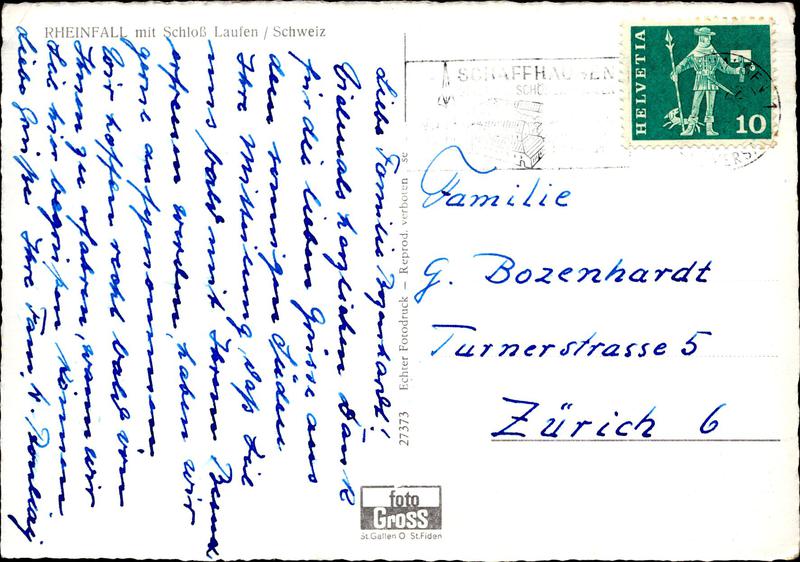 RHEINFALL mit Schloß Laufen / Schweiz
Liebe Familie Bozenhardt!
Vielmals herzlichen Dank
für die lieben Grüsse aus
dem sonnigen Süden
Ihre Mitteilung, daß Sie
uns bald mit Ihrem Besuch
erfreuen werden, haben wir
gerne aufgenommen
Wir hoffen recht bald von
Ihnen zu erfahren, wann wir
Sie hier begrüßen können
Liebe Grüße Ihre Fam.
27373 Echter Fotodruck – Reprod. verboten
se
foto
Gross
St.Gallen O St.Fiden
SCHAFFHAUSEN
HELVETIA
10
Familie
G. Bozenhardt
Turnerstrasse 5
Zürich 6